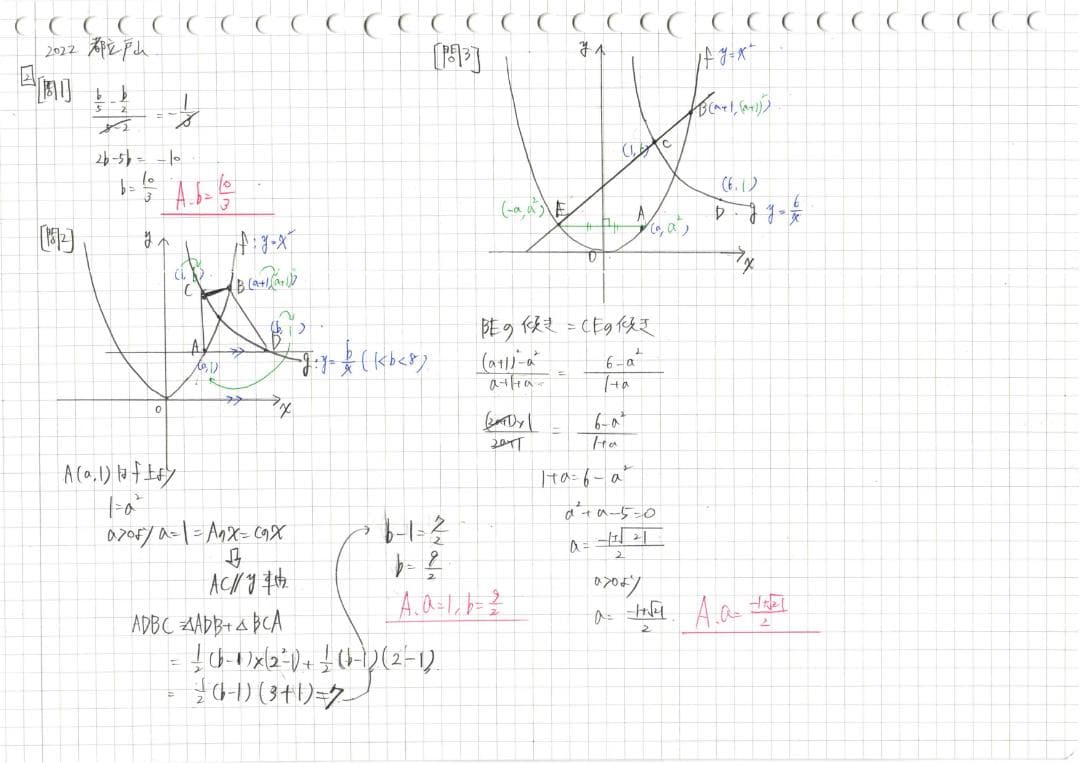 2022 都立戸山
2
[問1]
b/5 - b/2 / 5-2 = -1/3
2b-5b = -10
b = 10/3
A. b = 10/3
[問2]
y
f: y=x²
(1, b)
C
B(a+1,(a+1)²)
(b, 1)
A
D
(a,1)
g: y = b/x (1<b<8)
O
x
A(a,1)はf上より
1=a²
a>0より a=1=Aのx=Cのx
⇓
AC//y軸
ADBC = △ADB+△BCA
= 1/2(b-1)×(2²-1)+1/2(b-1)(2-1)
= 1/2(b-1)(3+1)=7
b-1=7/2
b = 9/2
A. a=1, b=9/2
[問3]
y
f y=x²
B(a+1,(a+1)²)
(1,6)
C
(6,1)
(-a,a²)
E
A
D
g y=6/x
(a,a²)
O
x
BEの傾き = CEの傾き
(a+1)²-a² / a+1+a = 6-a² / 1+a
(2a+1)×1 / 2a+1 = 6-a² / 1+a
1+a=6-a²
a²+a-5=0
a = -1±√21 / 2
a>0より
a = -1+√21 / 2
A. a = -1+√21 / 2